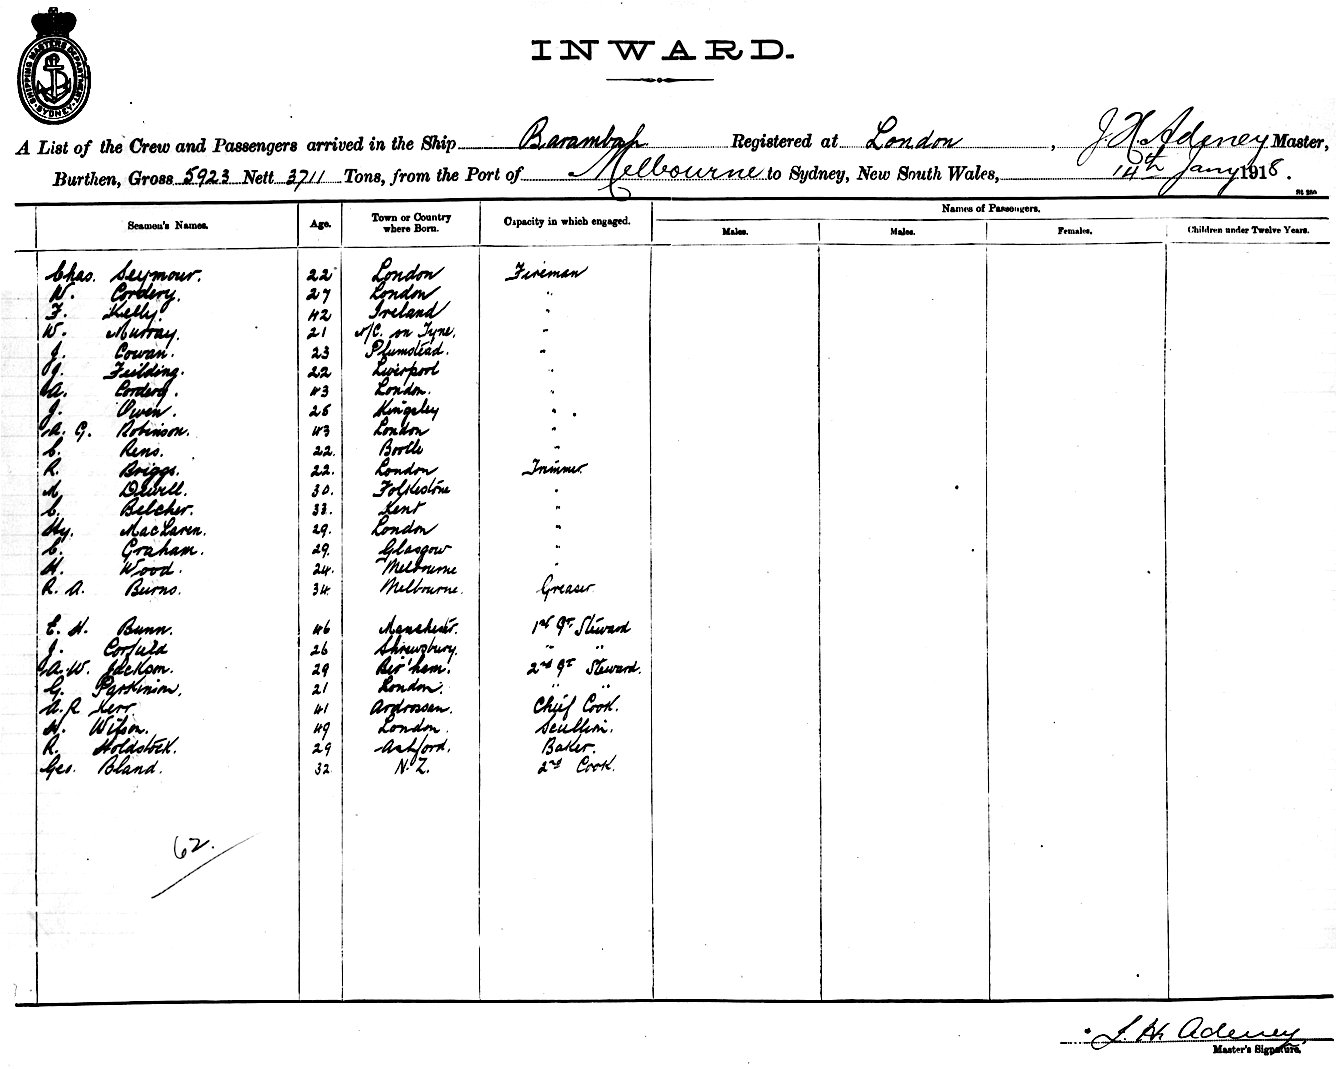 SHIPPING MASTERS DEPARTMENT SYDNEY
INWARD.
A List of the Crew and Passengers arrived in the Ship Barambah Registered at London, J H Adeney Master,
Burthen, Gross 5923 Nett 3711 Tons, from the Port of Melbourne to Sydney, New South Wales, 14th Jany 1918.
Seamen's Names. Age. Town or Country where Born. Capacity in which engaged. Names of Passengers.
Males. Males. Females. Children under Twelve Years.
Chas. Seymour. 22 London Fireman
W. Cordery. 27 London "
F. Kelly. 42 Ireland "
W. Murray. 21 N/C. on Tyne. "
J. Cowan. 23 Plumstead. "
J. Fielding. 22 Liverpool "
A. Cordery. 43 London. "
J. Owen. 28 Kingsley "
A. G. Robinson. 43 London "
C. Rens. 22. Bootle "
R. Briggs. 22. London Trimmer
Dewell. 30. Folkestone "
C. Belcher. 33. Kent "
Hy. MacLaren. 29. London "
C. Graham. 29. Glasgow "
H. Wood. 24. Melbourne "
R. A. Burns. 34 Melbourne. Greaser
E. H. Bunn. 46 Manchester. 1st Gr Steward
J. Corfield 26 Shrewsbury. " "
A. W. Jackson. 29 Bir'ham. 2nd Gr Steward.
G. Parkinson. 21 London. " "
A. R Kerr 41 Ardrossan. Chief Cook.
H. Wilson. 49 London Scullion.
R. Holdstock. 29 Ashford. Baker.
Geo. Bland. 32 N.Z. 2nd Cook.
62.
J. H. Adeney
Master's Signature.